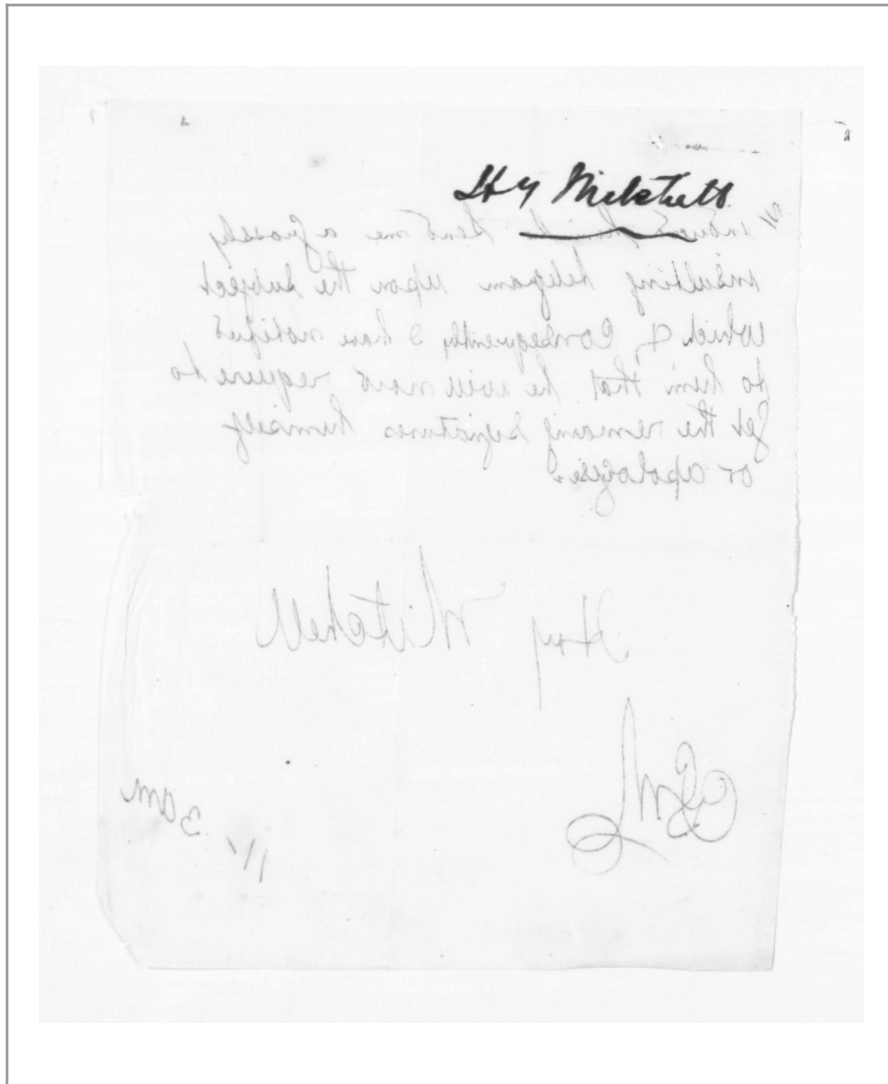 Hy Mitchell
induced him send me a grossly
insulting telegram upon the subject
which & Consequently I have notified
to him that he will now require to
get the remaing signatures himself
or apologise.
Hny Mitchell
3 am